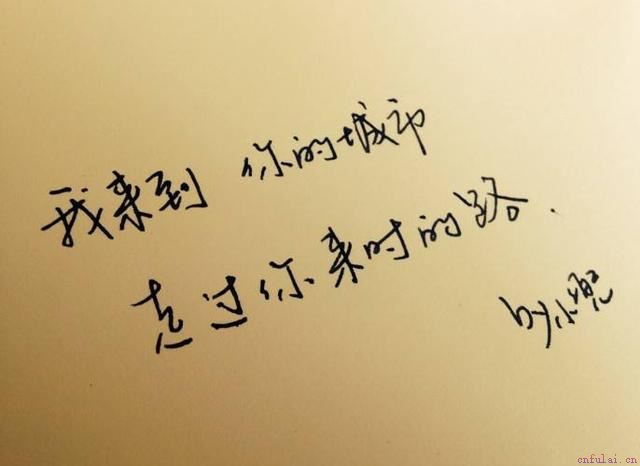 我来到 你的城市
走过你来时的路.
by小
cnfulai.cn